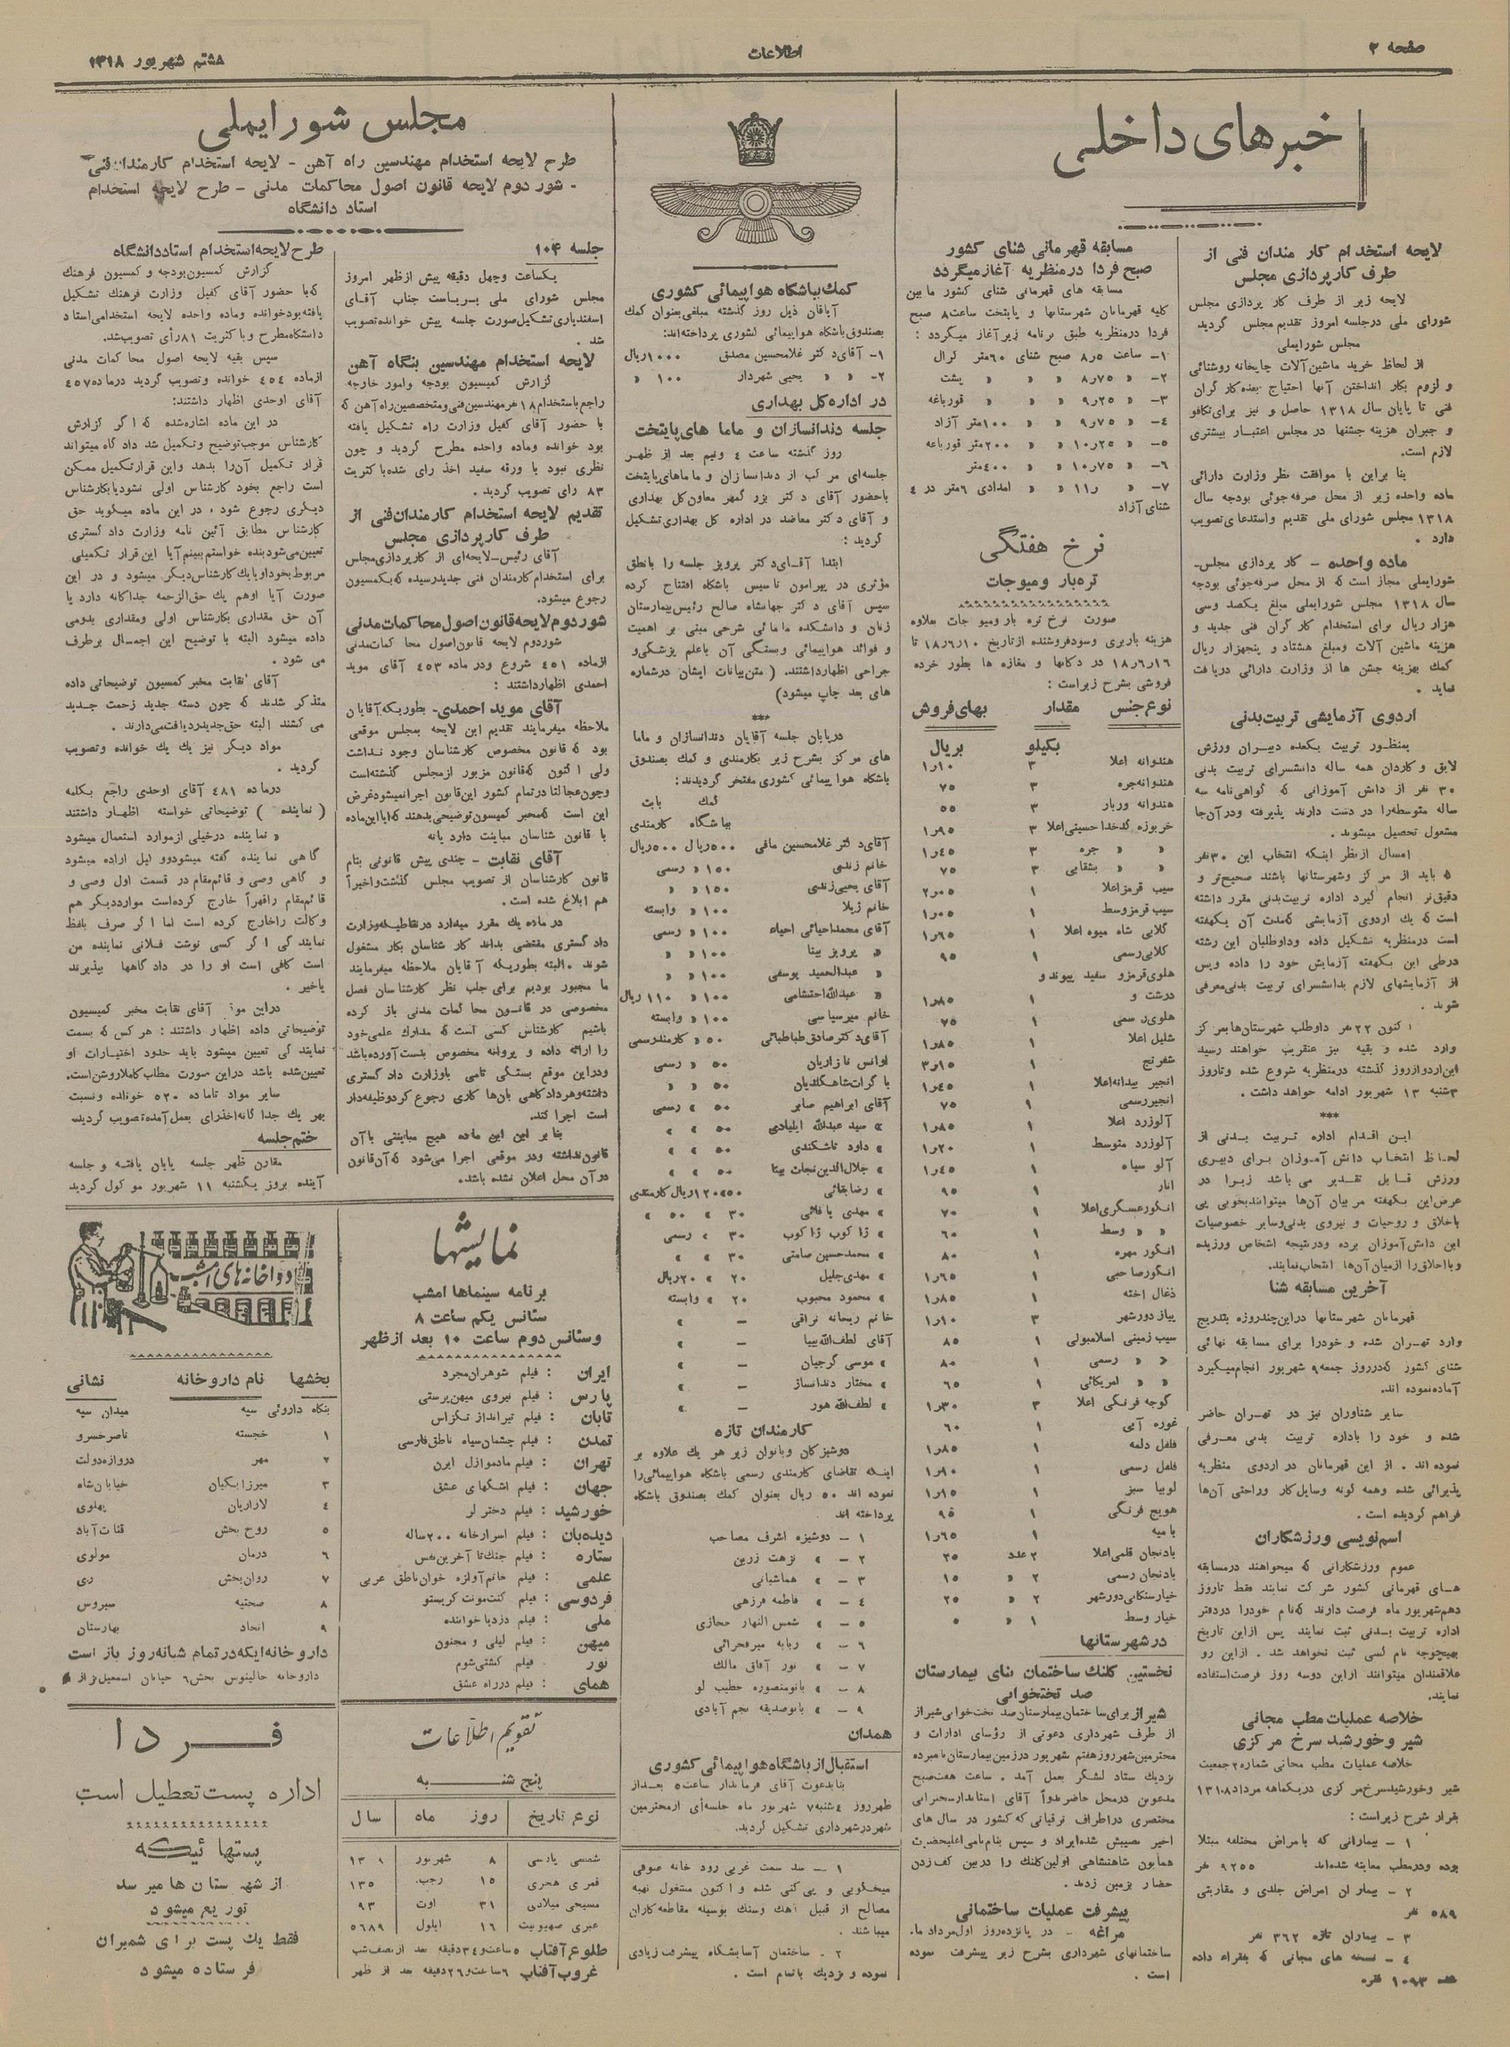 صفحه ۲
اطلاعات
هشتم شهریور ۱۳۱۸
خبرهای داخلی
لایحه استخدام کارمندان فنی از
طرف کارپردازی مجلس
لایحه زیر از طرف کار پردازی مجلس
شورای ملی درجلسه امروز تقدیم مجلس گردید
مجلس شورایملی
از لحاظ خرید ماشین‌آلات چاپخانه روشنائی
و لزوم بکار انداختن آنها احتیاج بعده کارگران
فنی تا پایان سال ۱۳۱۸ حاصل و نیز برای تکافو
و جبران هزینه جشنها در مجلس اعتبار بیشتری
لازم است.
بنا براین با موافقت نظر وزارت دارائی
ماده واحده زیر از محل صرفه‌جوئی بودجه سال
۱۳۱۸ مجلس شورای ملی تقدیم واستدعای تصویب
دارد .
ماده واحده – کار پردازی مجلس
شورایملی مجاز است که از محل صرفه‌جوئی بودجه
سال ۱۳۱۸ مجلس شورایملی مبلغ یکصد وسی
هزار ریال برای استخدام کارگران فنی جدید و
هزینه ماشین آلات ومبلغ هشتاد و پنجهزار ریال
کمک بهزینه جشن ها از وزارت دارائی دریافت
نماید .
اردوی آزمایشی تربیت بدنی
بمنظور تربیت یکعده دبیران ورزش
لایق و کاردان همه ساله دانشسرای تربیت بدنی
۳۰ نفر از دانش آموزانی که گواهی‌نامه سه
ساله متوسطه را در دست دارند پذیرفته ودرآن‌جا
مشغول تحصیل میشوند.
امسال از نظر اینکه انتخاب این ۳۰ نفر
که باید از مرکز وشهرستانها باشند صحیح‌تر و
دقیق‌تر انجام گیرد اداره تربیت‌بدنی مقرر داشته
است که یک اردوی آزمایشی که مدت آن یکهفته
است درمنظریه تشکیل داده وداوطلبان این رشته
درطی این یکهفته آزمایش خود را داده وپس
از آزمایشهای لازم بدانشسرای تربیت بدنی معرفی
شوند .
اکنون ۲۲ نفر داوطلب شهرستان‌ها بمرکز
وارد شده و بقیه نیز عنقریب خواهند رسید
این‌اردو ازروز گذشته درمنظریه شروع شده وتاروز
۳شنبه ۱۳ شهریور ادامه خواهد داشت .
***
این اقدام اداره تربیت بدنی از
لحاظ انتخاب دانش آموزان برای دبیری
ورزش قابل تقدیر می باشد زیرا در
عرض‌این یکهفته مربیان آن‌ها میتوانند بخوبی پی
باخلاق و روحیات و نیروی بدنی وسایر خصوصیات
این دانش‌آموزان برده ودرنتیجه اشخاص ورزیده
وبااخلاق را ازمیان آن‌ها انتخاب نمایند.
آخرین مسابقه شنا
قهرمانان شهرستانها دراین‌چندروزه بتدریج
وارد تهران شده و خودرا برای مسابقه نهائی
شنای کشور که درروز جمعه ۹ شهریور انجام میگیرد
آماده نموده اند.
سایر شناوران نیز در تهران حاضر
شده و خود را باداره تربیت بدنی معرفی
نموده اند . از این قهرمانان در اردوی منظریه
پذیرائی شده وهمه گونه وسایل‌کار وراحتی آن‌ها
فراهم گردیده است .
اسم‌نویسی ورزشکاران
عموم ورزشکارانی که میخواهند درمسابقه
های قهرمانی کشور شرکت نمایند فقط تاروز
دهم‌شهریور ماه فرصت دارند که‌نام خودرا دردفتر
اداره تربیت بدنی ثبت نمایند پس ازاین تاریخ
بهیچوجه نام کسی ثبت نخواهد شد . ازاین رو
علاقمندان میتوانند ازاین دوسه روز فرصت‌استفاده
نمایند.
خلاصه عملیات مطب مجانی
شیر وخورشید سرخ مرکزی
خلاصه عملیات مطب مجانی شماره ۲ جمعیت
شیر وخورشیدسرخ‌مرکزی دریکماهه مرداد
بقرار شرح زیراست :
۱ – بیمارانی که بامراض مختلفه مبتلا
بوده ودرمطب معاینه شده‌اند ۹۲۵۵ نفر
۲ – بیماران امراض جلدی و مقاربتی
۵۸۹ نفر
۳ – بیماران تازه ۳۶۲ نفر
۴ – نسخه های مجانی که بفقراء داده
شده ۱۰۹۳ فقره
مسابقه قهرمانی شنای کشور
صبح فردا درمنظریه آغاز میگردد
مسابقه های قهرمانی شنای کشور ما بین
کلیه قهرمانان شهرستانها و پایتخت ساعت ۸ صبح
فردا درمنظریه طبق برنامه زیر آغاز میگردد :
۱– ساعت ۸ر۵ صبح شنای ۶۰متر کرال
۲– » ۸ر۷۵ » » » پشت
۳– » ۹ر۲۵ » » » قورباغه
۴– » ۹ر۷۵ » » ۱۰۰متر آزاد
۵– » ۱۰ر۲۵ » » ۲۰۰متر قورباغه
۶– » ۱۰ر۷۵ » » ۴۰۰متر
۷– » ۱۱ر » » امدادی ۶متر در ۴
شنای آزاد
نرخ هفتگی
تره‌بار ومیوجات
صورت نرخ تره بار ومیو جات بعلاوه
هزینه باربری وسودفروشنده ازتاریخ ۱۸ر۶ر۱۰ تا
۱۸ر۶ر۱۶ در دکانها و مغازه ها بطور خرده
فروشی بشرح زیراست :
نوع‌جنس مقدار بهای‌فروش
بکیلو بریال
هندوانه اعلا ۳ ۱ر۱۰
هندوانه‌جره ۳ ۷۵
هندوانه وربار ۳ ۵۵
خربوزه گدخداحسینی‌اعلا ۳ ۱ر۹۵
» » جره ۳ ۱ر۴۵
» » بشقابی ۳ ۷۵
سیب قرمزاعلا ۱ ۲ر۰۵
سیب قرمزوسط ۱ ۱ر۰۵
گلابی شاه میوه اعلا ۱ ۱ر۶۵
گلابی‌رسمی ۱ ۹۵
هلوی‌قرمزو سفید پیوند و
درشت و ۱ ۱ر۸۵
هلوی‌رسمی ۱ ۷۵
شلیل اعلا ۱ ۱ر۸۵
شفرنج ۱ ۳ر۱۵
انجیر بیدانه‌اعلا ۱ ۱ر۴۵
انجیررسمی ۱ ۷۵
آلوزرد اعلا ۱ ۱ر۸۵
آلوزرد متوسط ۱ ۱ر۲۰
آلو سیاه ۱ ۱ر۴۵
انار ۱ ۹۵
انگورعسگری‌اعلا ۱ ۷۰
» » وسط ۱ ۶۰
انگور مهره ۱ ۸۰
انگورصاحبی ۱ ۱ر۶۵
ذغال اخته ۱ ۱ر۸۵
پیاز دورشهر ۳ ۱ر۱۰
سیب زمینی اسلامبولی ۱ ۸۵
» » رسمی ۱ ۸۰
» » امریکائی ۱ ۶۵
گوجه فرنگی اعلا ۳ ۱ر۳۰
غوره آبی ۱ ۶۰
فلفل دلمه ۱ ۱ر۸۵
فلفل رسمی ۱ ۱ر۹۰
لوبیا سبز ۱ ۱ر۱۵
هویج فرنگی ۱ ۹۵
بامیه ۱ ۱ر۶۵
بادنجان قلمی‌اعلا ۲ عدد ۲۵
بادنجان رسمی ۲ » ۱۵
خیارسنکانی‌دورشهر ۲ » ۲۵
خیار وسط ۱ » ۵
درشهرستانها
نخستین کلنک ساختمان بنای بیمارستان
صد تختخوابی
شیراز برای‌ساختمان بیمارستان صد تخت‌خوابی شیراز
از طرف شهرداری دعوتی از رؤسای ادارات و
محترمین شهر روز هفتم شهریور درزمین بیمارستان نامبرده
نزدیک ستاد لشگر بعمل آمد . ساعت هفت‌صبح
مدعوین درمحل حاضر بدواً آقای استاندار سخنرانی
مختصری دراطراف ترقیاتی که‌کشور در سال های
اخیر نصیبش شده‌ایراد و سپس بنام‌نامی اعلیحضرت
همایون شاهنشاهی اولین‌کلنک را دربین کف زدن
حضار بزمین زدند .
پیشرفت عملیات ساختمانی
مراغه – در پانزده‌روز اول‌مرداد ماه
ساختمانهای شهرداری بشرح زیر پیشرفت نموده
است .
کمک بباشگاه هواپیمائی کشوری
آیاقان ذیل روز گذشته مبلغی‌بعنوان کمک
بصندوق‌باشگاه هواپیمائی کشوری پرداخته‌اند:
۱– آقای‌دکتر غلامحسین مصدق ۱۰۰۰ریال
۲– » » یحیی شهردار ۱۰۰ »
در اداره‌کل بهداری
جلسه دندانسازان و ماما های پایتخت
روز گذشته ساعت ٤ ونیم بعد از ظهر
جلسه‌ای مرکب از دندانسازان و ماماهای پایتخت
باحضور آقای دکتر بزرگمهر معاون‌کل بهداری
و آقای دکتر معاضد در اداره کل بهداری‌تشکیل
گردید :
ابتدا آقای‌دکتر پرویز جلسه را بانطق
مؤثری در پیرامون تاسیس باشگاه افتتاح کرده
سپس آقای دکتر جهانشاه صالح رئیس‌بیمارستان
زنان و دانشکده مامائی شرحی مبنی بر اهمیت
و فوائد هواپیمائی وبستگی آن باعلم پزشکی‌و
جراحی اظهارداشتند. ( متن‌بیانات ایشان درشماره
های بعد چاپ میشود)
***
درپایان جلسه آقایان دندانسازان و ماما
های مرکز بشرح زیر بکارمندی و کمک بصندوق
باشگاه هواپیمائی کشوری مفتخر گردیدند :
کمک بابت
بباشگاه کارمندی
آقای‌دکتر غلامحسین مافی ۵۰۰ریال ۵۰۰ریال
خانم زندی ۱۵۰ » رسمی
آقای یحیی‌زندی ۱۵۰ » »
خانم ژیلا ۱۰۰ » وابسته
آقای محمداحیائی احیاء ۱۰۰ » رسمی
» پرویز بینا ۱۰۰ » »
» عبدالحمید یوسفی ۱۰۰ » »
» عبدالله‌احتشامی ۱۰۰ » ۱۱۰ ریال
خانم میرسپاسی ۱۰۰ » وابسته
آقای‌دکترصادق‌طباطبائی ۵۰ » کارمندرسمی
اوانس نازاریان ۵۰ » رسمی
باگرات‌شاهگلدیان ۵۰ » »
آقای ابراهیم صابر ۵۰ » رسمی
» سید عبدالله ایلیادی ۵۰ » »
» داود تاشکندی ۵۰ » »
» جلال‌الدین‌نجات بینا ۵۰ » »
» رضابقائی ۵۰ » ۱۲۰ریال‌کارمندی
» مهدی بافلانی ۳۰ » ۵۰ »
» ژاکوب ژاکوب ۳۰ » رسمی
» محمدحسین صامتی ۳۰ » »
» مهدی‌جلیل ۲۰ » ۲۰ریال
» محمود محبوب ۲۰ » وابسته
خانم ریحانه نراقی – »
آقای لطف‌الله‌بیبا – »
» موسی گرجیان – »
» مختار دندانساز – »
» لطف‌الله هور – »
کارمندان تازه
دوشیزگان وبانوان زیر هر یک علاوه بر
اینکه تقاضای کارمندی رسمی باشگاه هواپیمائی‌را
نموده اند ۵۰ ریال بعنوان کمک بصندوق باشگاه
پرداخته اند
۱ – دوشیزه اشرف مصاحب
۲ – » نزهت زرین
۳ – » هماشیبانی
۴ – » فاطمه فرزهی
۵ – » شمس النهار حجازی
۶ – » ربابه میرفخرائی
۷ – » نور آفاق مالک
۸ – » بانومنصوره خطیب لو
۹ – » بانوصدیقه نجم آبادی
همدان
استقبال از باشگاه هواپیمائی کشوری
بنابدعوت آقای فرماندار ساعت ۵ بعداز
ظهر روز ٤شنبه۷ شهریور ماه جلسه‌ای ازمحترمین
شهر درشهرداری تشکیل گردید.
۱ – سد سمت غربی رود خانه صوفی
میخکوبی و پی کنی شده و اکنون مشغول تهیه
مصالح از قبیل آهک وسنک بوسیله مقاطعه‌کاران
میباشند .
۲ – ساختمان آسایشگاه پیشرفت زیادی
نموده و نزدیک باتمام است .
مجلس شورایملی
طرح لایحه استخدام مهندسین راه آهن – لایحه استخدام کارمندان فنی
– شور دوم لایحه قانون اصول محاکمات مدنی – طرح لایحه استخدام
استاد دانشگاه
جلسه ۱۰۴
یکساعت وچهل دقیقه پیش ازظهر امروز
مجلس شورای ملی بریاست جناب آقای
اسفندیاری‌تشکیل‌صورت جلسه پیش خوانده‌تصویب
شد .
لایحه استخدام مهندسین بنگاه آهن
گزارش کمیسیون بودجه وامور خارجه
راجع باستخدام ۱۸نفرمهندسین‌فنی‌ومتخصصین راه‌آهن که
با حضور آقای کفیل وزارت راه تشکیل یافته
بود خوانده وماده واحده مطرح گردید و چون
نظری نبود با ورقه سفید اخذ رای شده با کثریت
۸۳ رای تصویب گردید .
تقدیم لایحه استخدام کارمندان‌فنی از
طرف کارپردازی مجلس
آقای رئیس–لایحه‌ای از کارپردازی‌مجلس
برای استخدام‌کارمندان فنی جدیدرسیده که‌بکمسیون
رجوع میشود.
شوردوم لایحه قانون اصول محاکمات مدنی
شوردوم لایحه قانون‌اصول محا کمات‌مدنی
ازماده ۴۵۱ شروع ودر ماده ۴۵۳ آقای موید
احمدی اظهارداشتند :
آقای موید احمدی– بطوریکه‌آقایان
ملاحظه میفرمایند تقدیم این لایحه بمجلس موقعی
بود که قانون مخصوص کارشناسان وجود نداشت
ولی اکنون که‌قانون مزبور ازمجلس گذشته‌است
وچون‌عجالتا درتمام کشور این‌قانون اجرانمیشودغرض
این است که‌مخبر کمیسون‌توضیحی‌بدهند که‌آیااین‌ماده
با قانون شناسان مباینت دارد یانه
آقای نقابت – چندی پیش قانونی بنام
قانون کارشناسان از تصویب مجلس گذشت‌واخیراً
هم ابلاغ شده است .
در ماده یک مقرر میدارد درنقاطیکه‌وزارت
دادگستری مقتضی بداند کار شناسان بکار مشغول
شوند .البته بطوریکه آقایان ملاحظه میفرمایند
ما مجبور بودیم برای جلب نظر کارشناسان فصل
مخصوصی در قانون محاکمات مدنی باز کرده
باشیم کارشناس کسی است که مدارک علمی‌خود
را ارائه داده و پروانه مخصوص بدست‌آورده‌باشد
ودراین موقع بستگی تامی باوزارت دادگستری
داشته‌وهردادگاهی بان‌ها کاری رجوع کردوظیفه‌دار
است اجرا کند.
بنا بر این این ماده هیچ مباینتی با آن
قانون‌نداشته ودر موقعی اجرا می‌شود که‌آن‌قانون
درآن محل اعلان نشده باشد.
طرح لایحه استخدام استاددانشگاه
گزارش کمسیون‌بودجه و کمسیون فرهنگ
که‌با حضور آقای کفیل وزارت فرهنگ تشکیل
یافته‌بودخوانده وماده واحده لایحه استخدامی‌استاد
دانشگاه‌مطرح و با کثریت ۸۱رأی تصویب‌شد.
سپس بقیه لایحه اصول محا کمات مدنی
ازماده ۴۵۴ خوانده وتصویب گردید درماده ۴۵۷
آقای اوحدی اظهار داشتند:
در این ماده اشاره‌شده که اگر گزارش
کارشناس موجب‌توضیح وتکمیل شد دادگاه میتواند
قرار تکمیل آن‌را بدهد واین قرارتکمیل ممکن
است راجع بخود کارشناس اولی نشودبا‌کارشناس
دیگری رجوع شود، در این ماده میگوید حق
کارشناس مطابق آئین نامه وزارت دادگستری
تعیین‌می‌شودبنده خواستم‌ببینم‌آیا این‌قرار تکمیلی
مربوط بخوداو‌یا‌یک‌کارشناس‌دیگر میشود و در این
صورت آیا اوهم یک حق‌الزحمه جداگانه دارد یا
آن حق مقداری بکارشناس اولی ومقداری بدومی
داده میشود البته با توضیح این اجمال برطرف
می شود .
آقای نقابت مخبر کمسیون توضیحاتی داده
متذکر شدند که چون دسته جدید زحمت جدید
می کشند البته حق‌جدید‌دریافت‌می‌دارند.
مواد دیگر نیز یک یک خوانده وتصویب
گردید .
درماده ۴۸۱ آقای اوحدی راجع بکلمه
( نماینده ) توضیحاتی خواسته اظهار داشتند
» نماینده درخیلی ازموارد استعمال میشود
گاهی نماینده گفته میشودو‌وکیل اراده میشود
و گاهی وصی و قائم‌مقام در قسمت اول وصی و
قائم‌مقام راقهراً خارج کرده‌است موارددیگر هم
وکالت راخارج کرده است اما اگر صرف بلفظ
نمایندگی اگر کسی نوشت فلانی نماینده من
است کافی است او را در دادگاهها بپذیرند
یاخیر .
دراین مورد آقای نقابت مخبر کمیسیون
توضیحاتی داده اظهار داشتند : هر کس که بسمت
نمایندگی تعیین میشود باید حدود اختیارات او
تعیین‌شده باشد دراین صورت مطلب‌کاملاروشن‌است.
سایر مواد تاماده ۵۲۰ خوانده ونسبت
بهر یک جدا گانه‌اخذرای بعمل‌آمده‌تصویب گردید.
ختم‌جلسه
مقارن ظهر جلسه پایان یافته و جلسه
آینده بروز یکشنبه ۱۱ شهریور موکول گردید
نمایشها
برنامه سینماها امشب
سئانس یکم ساعت ۸
وسئانس دوم ساعت ۱۰ بعد ازظهر
ایران : فیلم شوهران‌مجرد
پارس : فیلم نیروی میهن‌پرستی
تابان : فیلم تیرانداز تگزاس
تمدن : فیلم چشمان‌سیاه ناطق‌فارسی
تهران : فیلم مادموازل ایرن
جهان : فیلم اشگهای عشق
خورشید : فیلم دختر لر
دیده‌بان : فیلم اسرارخانه ۲۰۰ساله
ستاره : فیلم جنک‌تا آخرین‌نفس
علمی : فیلم خانم‌آوازه خوان‌ناطق عربی
فردوسی : فیلم کنت‌مونت کریستو
ملی : فیلم دزدیاخواننده
میهن : فیلم لیلی و مجنون
نور فیلم کشتی‌شوم
همای : فیلم درراه عشق
تقویم اطلاعات
پنج شنبه
نوع تاریخ روز ماه سال
شمسی پارسی ۸ شهریور
قمری هجری ۱۵ رجب
مسیحی میلادی ۳۱ اوت
عبری صهیونیت ۱۶ ایلول ۵۶۸۹
طلوع آفتاب ۵ساعت‌و۳٤دقیقه بعد از نصف شب
غروب آفتاب ۶ساعت‌و۲۶دقیقه بعد از ظهر
دواخانه‌های امشب
بخشها نام داروخانه نشانی
بنگاه داروئی سپه میدان سپه
۱ خجسته ناصرخسرو
۲ مهر دروازه‌دولت
۳ میرزایکیان خیابان‌شاه
۴ لازاریان پهلوی
۵ روح بخش قنات‌آباد
۶ درمان مولوی
۷ روان‌بخش ری
۸ صحتیه سیروس
۹ اتحاد بهارستان
داروخانه‌ایکه‌درتمام شبانه‌روز باز است
داروخانه جالینوس بخش۶ خیابان اسمعیل‌بزاز
فردا
اداره پست تعطیل است
پستها ئیکه
از شهرستان ها میرسد
توزیع میشود
فقط یک پست برای شمیران
فرستاده میشود